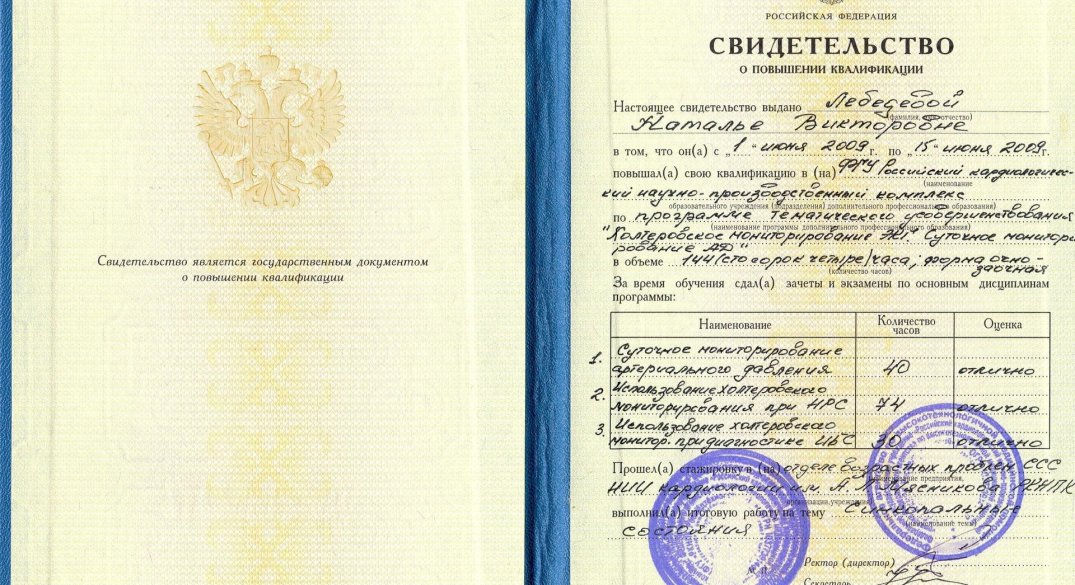 Свидетельство является государственным документом
о повышении квалификации
РОССИЙСКАЯ ФЕДЕРАЦИЯ
СВИДЕТЕЛЬСТВО
О ПОВЫШЕНИИ КВАЛИФИКАЦИИ
Настоящее свидетельство выдано Лебедевой
(фамилия, имя, отчество)
Наталье Викторовне
в том, что он(а) с „1“ июня 2009 г. по „15“ июня 2009 г.
повышал(а) свою квалификацию в (на) ФГУ Российский кардиологичес-
(наименование
кий научно-производственный комплекс
образовательного учреждения (подразделения) дополнительного профессионального образования)
по программе тематического усовершенствования
(наименование программы дополнительного профессионального образования)
"Холтеровское мониторирование ЭКГ. Суточное монитори
рование АД"
в объеме 144 (сто сорок четыре) часа; форма очно-
заочная
(количество часов)
За время обучения сдал(а) зачеты и экзамены по основным дисциплинам
программы:
Наименование Количество часов Оценка
1. Суточное мониторирование
артериального давления 40 отлично
2. Использование холтеровского
мониторирования при НРС 74 отлично
3. Использование холтеровского
монитор. при диагностике ИБС 30 отлично
Прошел(а) стажировку в (на) отделе возрастных проблем ССС
(наименование предприятия,
НИИ кардиологии им. А.Л. Мясникова РКНПК
организации, учреждения)
выполнил(а) итоговую работу на тему Синкопальные
(наименование темы)
состояния
Ректор (директор)
Секретарь